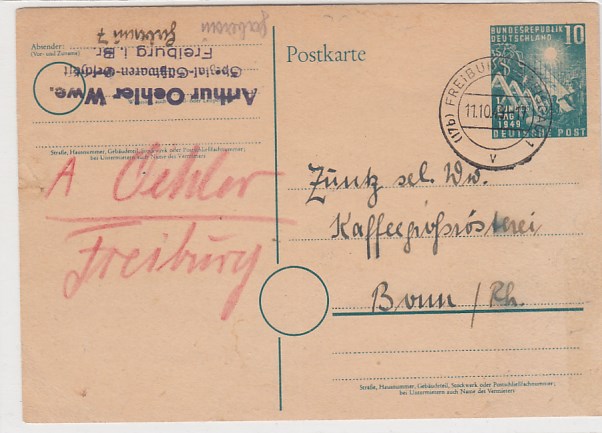 Absender:
(Vor- und Zuname)
Arthur Oehler Wwe.
Spezial-Süßwaren-Geschäft
Freiburg i. Br.
Straße, Hausnummer, Gebäudeteil, Stockwerk oder Postschließfachnummer;
bei Untermietern auch Name des Vermieters
A Oehler
Freiburg
Postkarte
BUNDESREPUBLIK 10
DEUTSCHLAND
1949
DEUTSCHE POST
(17b) FREIBURG
11.10.
v
Zuntz sel. Ww.
Kaffeegroßrösterei
Bonn / Rh.
Straße, Hausnummer, Gebäudeteil, Stockwerk oder Postschließfachnummer;
bei Untermietern auch Name des Vermieters